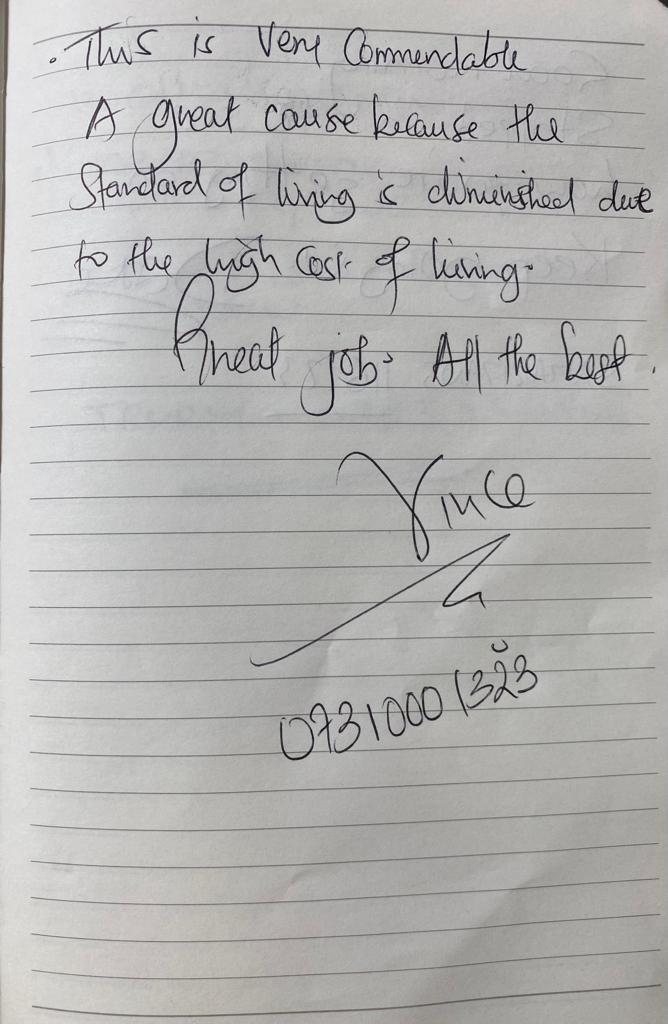 . This is Very Commendable
A great cause because the
Standard of living is diminished due
to the high Cost of living.
Great job. All the best.
Vince
07310001323